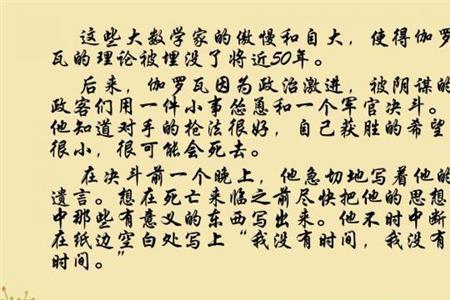 这些大数学家的傲慢和自大，使得伽罗
瓦的理论被埋没了将近50年。
后来，伽罗瓦因为政治激进，被阴谋的
政客们用一件小事怂恿和一个军官决斗。
他知道对手的枪法很好，自己获胜的希望
很小，很可能会死去。
在决斗前一个晚上，他急切地写着他的
遗言。想在死亡来临之前尽快把他的思想
中那些有意义的东西写出来。他不时中断
在纸边空白处写上“我没有时间，我没有
时间。”